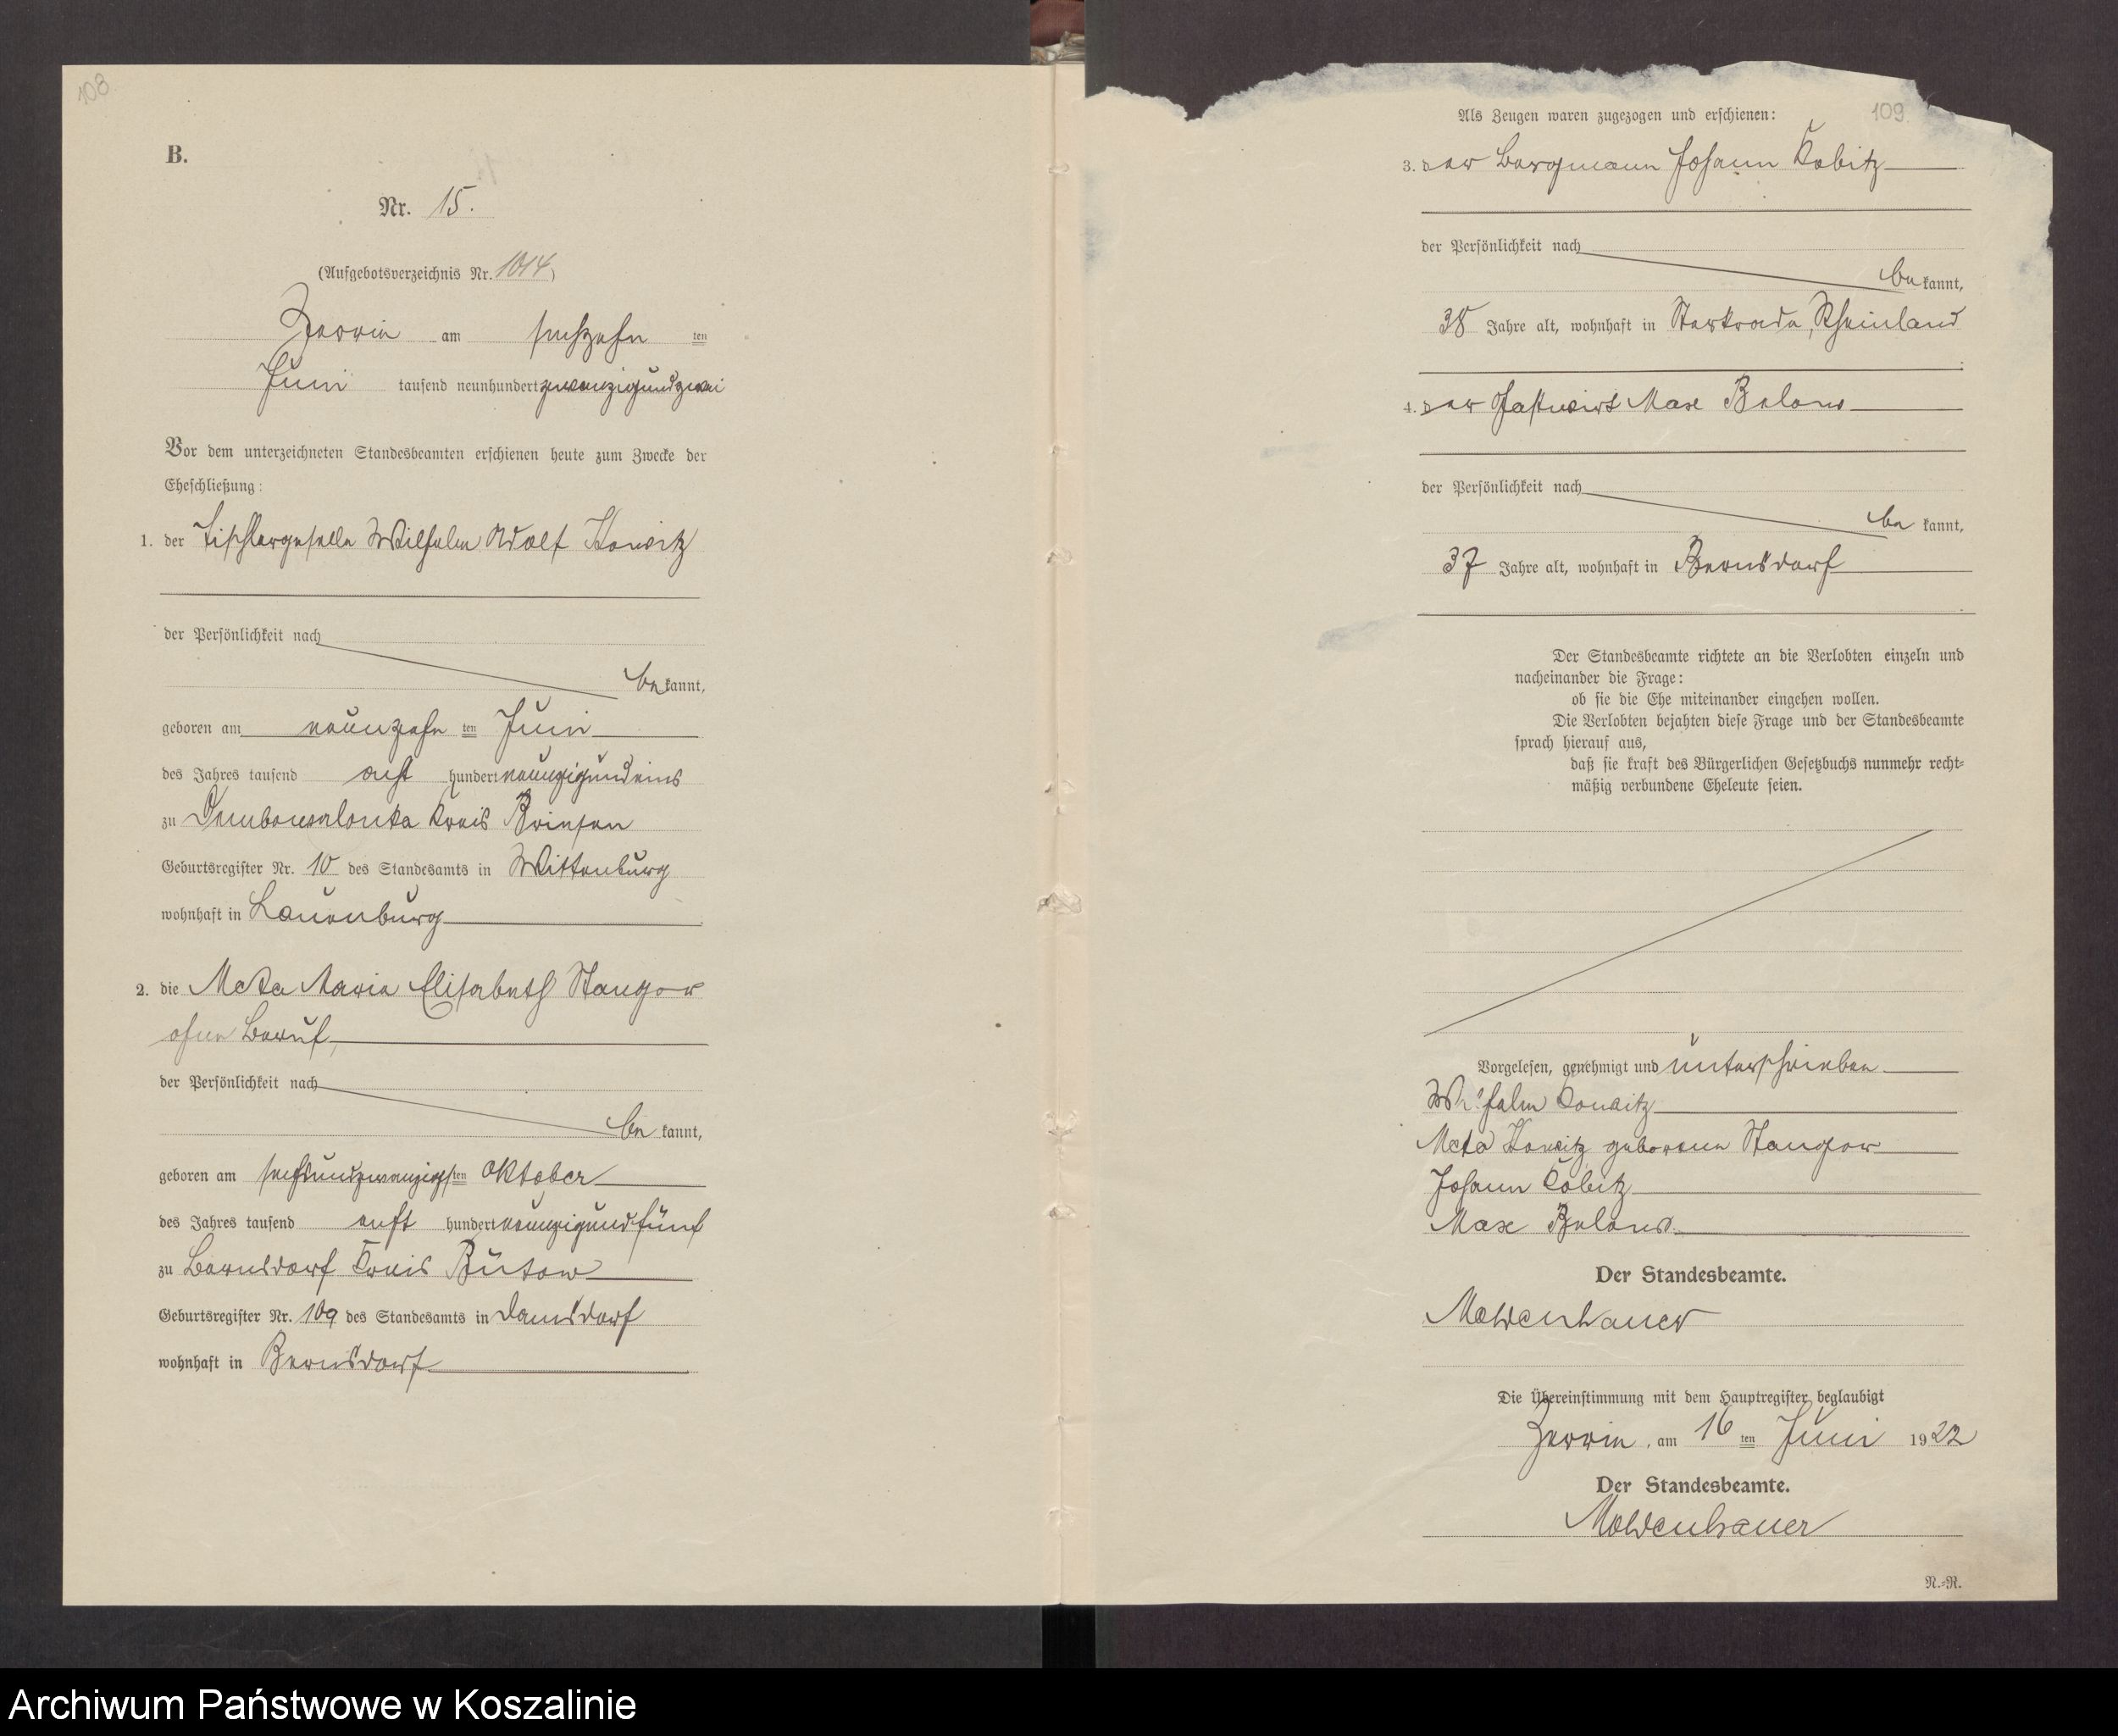 108
B.
Nr. 15.
(Aufgebotsverzeichnis Nr. 1014)
Zerrin am sechzehn ten
Juni tausend neunhundert zwanzigundzwei
Vor dem unterzeichneten Standesbeamten erschienen heute zum Zwecke der
Eheschließung:
1. der Tischlergeselle Wilhelm Adolf
der Persönlichkeit nach
be kannt,
geboren am neunzehn ten Juni
des Jahres tausend acht hundert neunzigundeins
zu Kreis Briesen
Geburtsregister Nr. 10 des Standesamts in Wittenburg
wohnhaft in Lauenburg
2. die Meta Maria Elisabeth Stangow
ohne Beruf,
der Persönlichkeit nach
be kannt,
geboren am sechsundzwanzigsten Oktober
des Jahres tausend acht hundert neunzigundfünf
zu Bernsdorf Kreis Bütow
Geburtsregister Nr. 109 des Standesamts in Damsdorf
wohnhaft in Bernsdorf
109
Als Zeugen waren zugezogen und erschienen:
3. der Bergmann Johann Kobitz
der Persönlichkeit nach
be kannt,
38 Jahre alt, wohnhaft in Sterkrade, Rheinland
4. der Gastwirt Max Below
der Persönlichkeit nach
be kannt,
37 Jahre alt, wohnhaft in Bernsdorf
Der Standesbeamte richtete an die Verlobten einzeln und
nacheinander die Frage:
ob sie die Ehe miteinander eingehen wollen.
Die Verlobten bejahten diese Frage und der Standesbeamte
sprach hierauf aus,
daß sie kraft des Bürgerlichen Gesetzbuchs nunmehr recht-
mäßig verbundene Eheleute seien.
Vorgelesen, genehmigt und unterschrieben
Wilhelm
Meta geborene Stangow
Johann Kobitz
Max Below
Der Standesbeamte.
Moldenhauer
Die Übereinstimmung mit dem Hauptregister beglaubigt
Zerrin, am 16 ten Juni 1922
Der Standesbeamte.
Moldenhauer
N.-R.
Archiwum Państwowe w Koszalinie